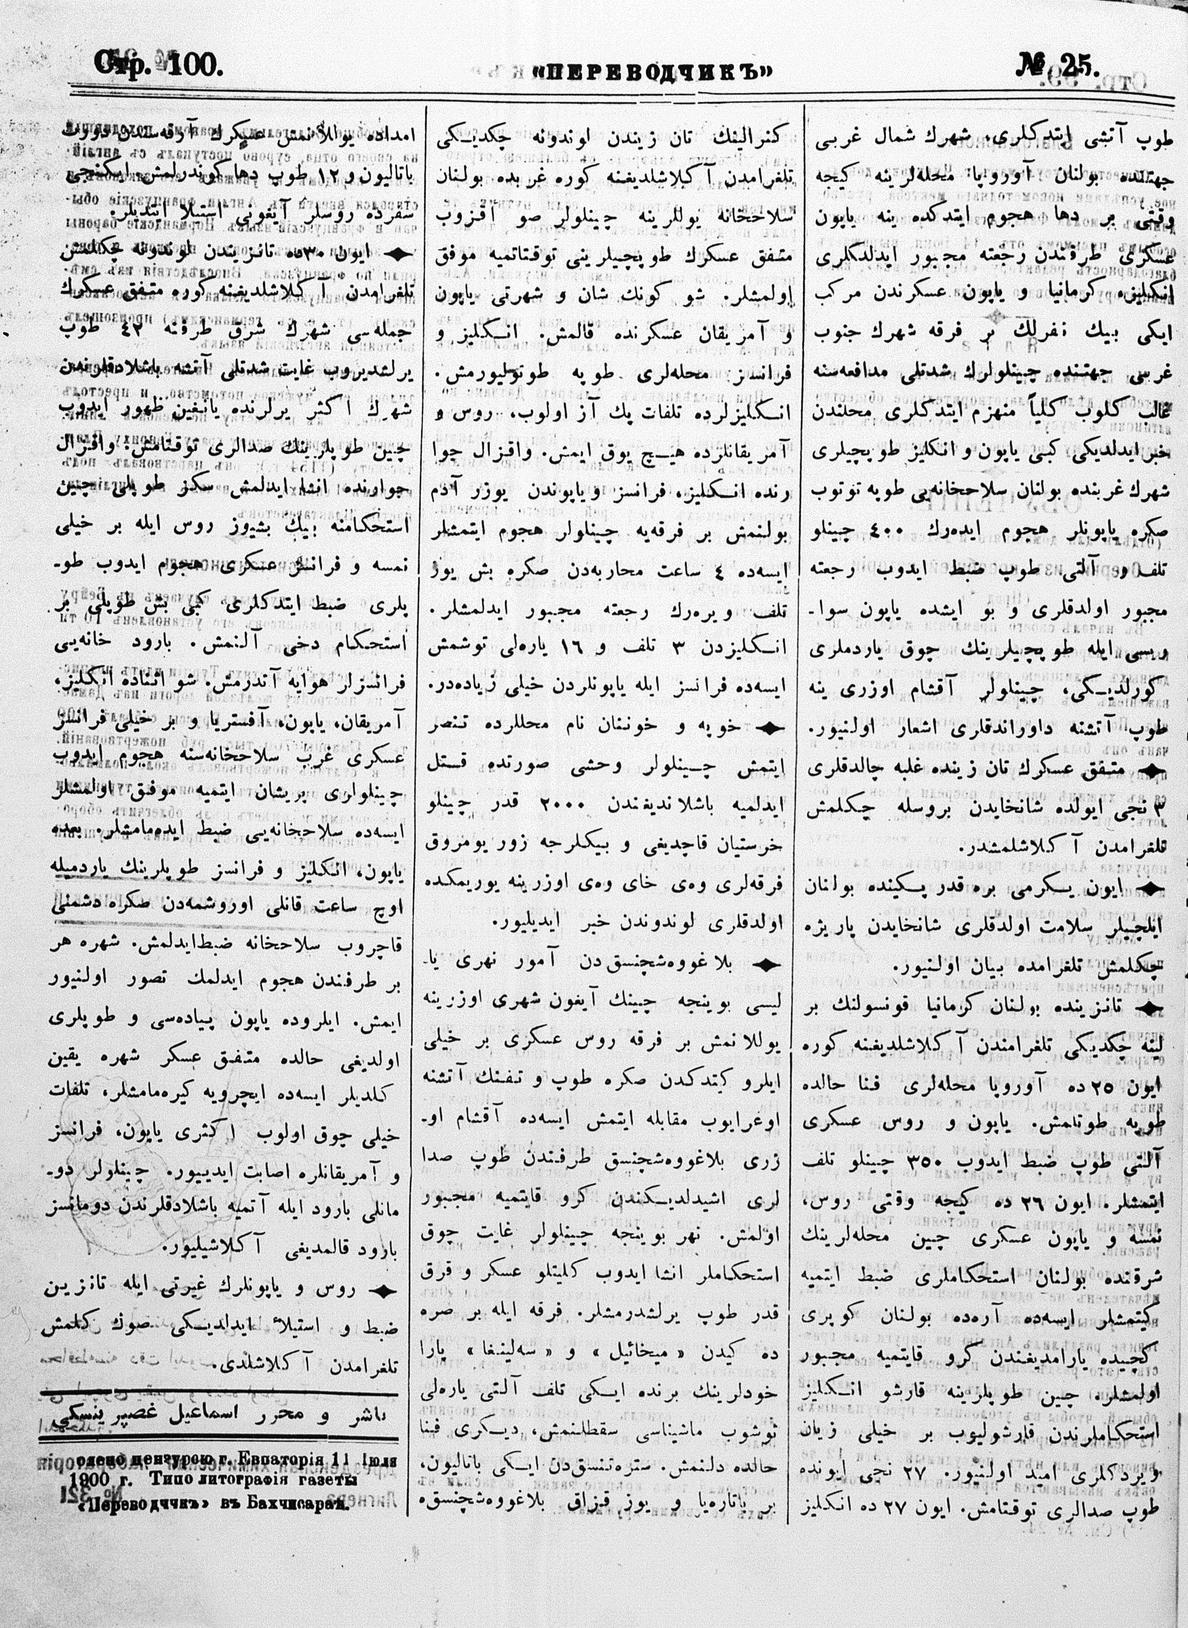 Стр. 100. «ПЕРЕВОДЧИКЪ» № 25.
طوپ آتشی ایتدکلری، شهرك شمال غربی
جهتنده بولنان آوروپا محله‌لرینه کیجه
وقتی بر دها هجوم ایتدکده ینه یاپون
عسکری طرفندن رجعته مجبور ایدلدکلری
انکلیز، کرمانیا و یاپون عسکرندن مرکب
ایکی بیك نفرلك بر فرقه شهرك جنوب
غربی جهتنده چینلولرك شدتلی مدافعه‌سنه
غالب کلوب کلیاً منهزم ایتدکلری محلندن
خبر ایدلدیکی کبی یاپون و انکلیز طوپچیلری
شهرك غربنده بولنان سلاحخانه‌یی طوپه توتوب
صکره یاپونلر هجوم ایدەرك ٤٠٠ چینلو
تلف و آلتی طوپ ضبط ایدوب رجعته
مجبور اولدقلری و بو ایشده یاپون سوا۔
ریسی ایله طوپچیلرینك چوق یاردملری
کورلدیکی، چینلولر آقشام اوزری ینه
طوپ آتشنه داوراندقلری اشعار اولنیور.
متفق عسکرك تان زینده غلبه چالدقلری
٣ نجی ایولده شانخایدن بروسله چکلمش
تلغرامدن آکلاشلمشدر.
ایون یکرمی بره قدر پکینده بولنان
ایلچیلر سلامت اولدقلری شانخایدن پاریژه
چکلمش تلغرامده بیان اولنیور.
تانزینده بولنان کرمانیا قونسولنك بر
لینه چکدیکی تلغرامندن آکلاشلدیغنه کوره
ایون ٢٥ ده آوروپا محله‌لری فنا حالده
طوپه طوتلمش. یاپون و روس عسکری
آلتی طوپ ضبط ایدوب ٣٥٠ چینلو تلف
ایتمشلر. ایون ٢٦ ده کیجه وقتی روس،
نمسه و یاپون عسکری چین محله‌لرینك
شرقنده بولنان استحکاملری ضبط ایتمیه
کیتمشلر ایسه‌ده آره‌ده بولنان کوپری
کچیده یارامدیغندن کرو قایتمیه مجبور
اولمشلر. چین طوپلرینه قارشو انکلیز
استحکاملرندن قارشولیوب بر خیلی زیان
ویردکلری امید اولنیور. ٢٧ نجی ایونده
طوپ صدالری توقتامش. ایون ٢٧ ده انکلیز
کنرالینك تان زیندن لوندونه چکدیکی
تلغرامدن آکلاشلدیغنه کوره غربده بولنان
سلاحخانه یوللرینه چینلولر صو آقزوب
متفق عسکرك طوپچیلرینی توقتاتمیه موفق
اولمشلر. شو کونك شان و شهرتی یاپون
و آمریقان عسکرنده قالمش. انکلیز و
فرانسز محله‌لری طوپه طوتولیورمش.
انکلیزلرده تلفات پك آز اولوب، روس و
آمریقانلرده هیچ یوق ایمش. واقزال جوا
رنده انکلیز، فرانسز و یاپوندن یوزر آدم
بولنمش بر فرقه‌یه چینلولر هجوم ایتمشلر
ایسه‌ده ٤ ساعت محاربه‌دن صکره بش یوز
تلف ویره‌رك رجعته مجبور ایدلمشلر.
انکلیزدن ٣ تلف و ١٦ یاره‌لی توشمش
ایسه‌ده فرانسز ایله یاپونلردن خیلی زیاده‌در.
خوپه و خونتان نام محللرده تنصر
ایتمش چینلولر وحشی صورتده قتل
ایدلمیه باشلاندیغندن ٢٠٠٠ قدر چینلو
خرستیان قاچدیغی و بیکلرجه زور یومروق
فرقه‌لری وه‌ی خای وه‌ی اوزرینه یوریمکده
اولدقلری لوندوندن خبر ایدیلیور.
بلاغووه‌شچنسق‌دن آمور نهری یا۔
لیسی بوینجه چینك آیغون شهری اوزرینه
یوللانمش بر فرقه روس عسکری بر خیلی
ایلرو کیتدکدن صکره طوپ و تفنك آتشنه
اوغرایوب مقابله ایتمش ایسه‌ده آقشام او۔
زری بلاغووه‌شچنسق طرفندن طوپ صدا
لری اشیدلدیکندن کرو قایتمیه مجبور
اولمش. نهر بوینجه چینلولر غایت چوق
استحکاملر انشا ایدوب کلیتلو عسکر و قرق
قدر طوپ یرلشدرمشلر. فرقه ایله بر صره
ده کیدن «میخائیل» و «سه‌لینغا» پارا
خودلرینك برنده ایکی تلف آلتی یاره‌لی
توشوب ماشیناسی سقطلنمش، دیکری فینا
حالده دلنمش. ستره‌تنسق‌دن ایکی باتالیون،
بر باتاره‌یا و یوز قزاق بلاغووه‌شچنسق‌ه
امداده یوللانمش عسکرك آرقه‌سندن دورت
باتالیون و ١٢ طوپ دها کوندرلمش، ایکنجی
سفرده روسلر آیغونی استیلا ایتدیلر.
ایون ٣٠ده تانزیندن لوندونه چکلمش
تلغرامدن آکلاشلدیغنه کوره متفق عسکرك
جمله‌سی شهرك شرق طرفنه ٤٢ طوپ
یرلشدیروب غایت شدتلی آتشه باشلادقلرندن
شهرك اکثر یرلرنده یانغین ظهور ایدوب
چین طوپلرینك صدالری توقتامش. واقزال
جوارنده انشا ایدلمش سکز طوپلی چین
استحکامنه بیك بشیوز روس ایله بر خیلی
نمسه و فرانسز عسکری هجوم ایدوب طو۔
پلری ضبط ایتدکلری کبی بش طوپلی بر
استحکام دخی آلنمش. بارود خانه‌یی
فرانسزلر هوایه آتدرمش. شو اثناده انکلیز،
آمریقان، یاپون، آفستریا و بر خیلی فرانسز
عسکری غرب سلاحخانه‌سنه هجوم ایدوب
چینلولری پریشان ایتمیه موفق اولمشلر
ایسه‌ده سلاحخانه‌یی ضبط ایده‌مامشلر. بعده
یاپون، انکلیز و فرانسز طوپلرینك یاردمیله
اوچ ساعت قانلی اوروشمه‌دن صکره دشمنی
قاچروب سلاحخانه ضبط ایدلمش. شهره هر
بر طرفندن هجوم ایدلمك تصور اولنیور
ایمش. ایلروده یاپون پیاده‌سی و طوپلری
اولدیغی حالده متفق عسکر شهره یقین
کلدیلر ایسه‌ده ایچرویه کیره‌مامشلر، تلفات
خیلی چوق اولوب اکثری یاپون، فرانسز
و آمریقانلره اصابت ایدییور. چینلولر دو۔
مانلی بارود ایله آتمیه باشلادقلرندن دومانسز
بارود قالمدیغی آکلاشیلیور.
روس و یاپونلرك غیرتی ایله تانزین
ضبط و استیلأ ایدلدیکی صوك کلمش
تلغرامدن آکلاشلدی.
ناشر و محرر اسماعیل غصپرینسکی
лено цензурою г. Евпаторія 11 Іюля
1900 г. Типо литографія газеты
«Переводчикъ» въ Бахчисараѣ.